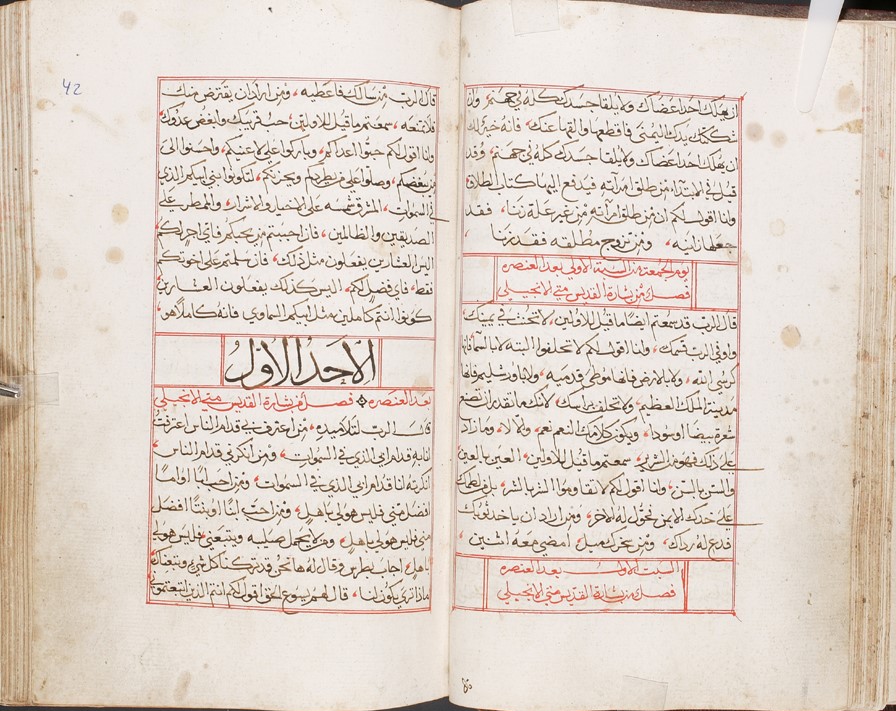 ان يهلك احد اعضاك ولا يلقا جسدك كله في جهنم، وان
شككتك يدك اليمنى فاقطعها والقها عنك، فانه خير لك
ان يهلك احد اعضاك ولا يلقا جسدك كله في جهنم، وقد
قيل في الابتدا، من طلق امراته فيدفع اليها كتاب الطلاق
وانا اقول لكم ان من طلق امراته من غير علة زنا، فقد
جعلها زانيه، ومن تزوج مطلقه فقد زنا،
يوم الجمعه من السبة الاولي بعد العنصره
فصل من بشارة القديس متي الانجيلي
قال الرب قد سمعتم ايضا ما قيل للاولين، لا تحنث في يمينك،
واوفي الرب قسمك، وانا اقول لكم لا تحلفوا البته لا بالسما فانها
كرسي الله، ولا بالارض فانها موطي قدميه، ولا باورشليم فانها
مدينة الملك العظيم، ولا تحلف براسك لانك ما تقدر ان تصنع
شعرة بيضا او سودا، ويكون كلامك النعم نعم، ولا لا، وما زاد
علي ذلك فهو من الشرير، سمعتم ما قيل للاولين، العين بالعين
والسن بالسن، وانا اقول لكم لا تقاوموا الشر بالشر، بل من لطمك
علي خدك الايمن فحول له الاخر، ومن اراد ان ياخد ثوبك
فدع له رداك، ومن سخرك ميل، امضي معه اثنين،
السبت الاول بعد العنصره
فصل من بشارة القديس متي الانجيلي
42
قال الرب من سالك فاعطيه، ومن اراد ان يقترض منك
فلا تمنعه، سمعتم ما قيل للاولين، حب قريبك وابغض عدوك
وانا اقول لكم حبوا اعداكم، وباركوا علي لاعنيكم، واحسنوا الى
من يبغضكم، وصلوا علي من يطردكم ويحزنكم، لتكونوا بني ابيكم الذي
في السموات، المشرق شمسه على الاخيار والاشرار، والممطر على
الصديقين والظالمين، فان احببتم من يحبكم فاي اجر لكم
اليس العشارين يفعلون مثل ذلك، فان سلمتم على اخوتكم
فقط، فاي فضل لكم، اليس كذلك يفعلون العشارين
كونوا انتم كاملين مثل ابيكم السماوي فانه كاملا هو،
الاحد الاول
بعد العنصره فصل من بشارة القديس متي الانجيلي
قال الرب لتلاميده، من اعترف بي قدام الناس اعترفت
انا به قدام ابي الذي في السموات، ومن انكرني قدام الناس
انكرته انا قدام ابي الذي في السموات، من احب ابا او اما
افضل مني فليس هو لي باهل، ومن احب ابنا او ابنتا افضل
مني فليس هو لي باهل، ومن لا يحمل صليبه ويتبعني فليس هو لي
باهل، اجاب بطرس وقال له ها نحن قد تركنا كل شي وتبعناك
ماذا تري يكون لنا، قال لهم يسوع الحق اقول لكم انتم الذين اتبعتموني